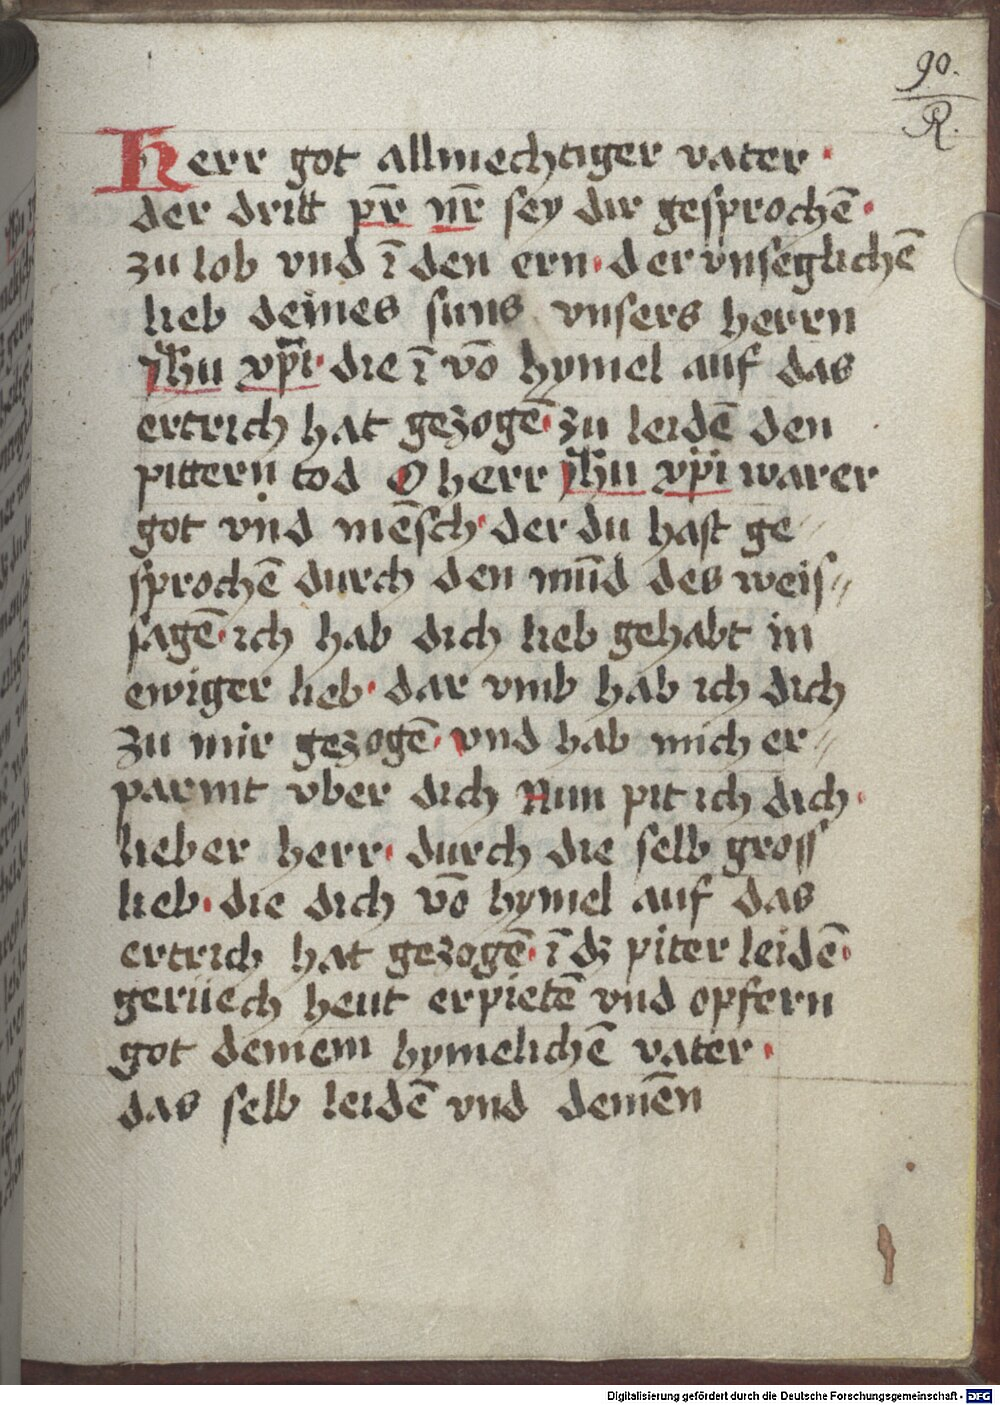 90.
R.
Herr got allmechtiger vater ·
der dritt pr̄ nr̄ sey dir gesprochē ·
zu lob vnd ī den ern · der vnseglichē
lieb deines suns vnsers herrn
Jhū xp̄i · die ī vō hymel auf das
ertrich hat gezogē · zu leidē den
pittern tod O herr Jhū xp̄i warer
got vnd mēsch · der du hast ge⸗
sprochē durch den mūd des weis⸗
sagē · ich hab dich lieb gehabt in
ewiger lieb · dar vmb hab ich dich
zu mir gezogē · vnd hab mich er⸗
parmt vber dich Nun pit ich dich ·
lieber herr · durch die selb gross
lieb · die dich vō hymel auf das
ertrich hat gezogē · ī dz piter leidē ·
gerüech heut erpietē vnd opfern
got deinem hymelichē vater ·
das selb leidē vnd deinēn
Digitalisierung gefördert durch die Deutsche Forschungsgemeinschaft - DFG